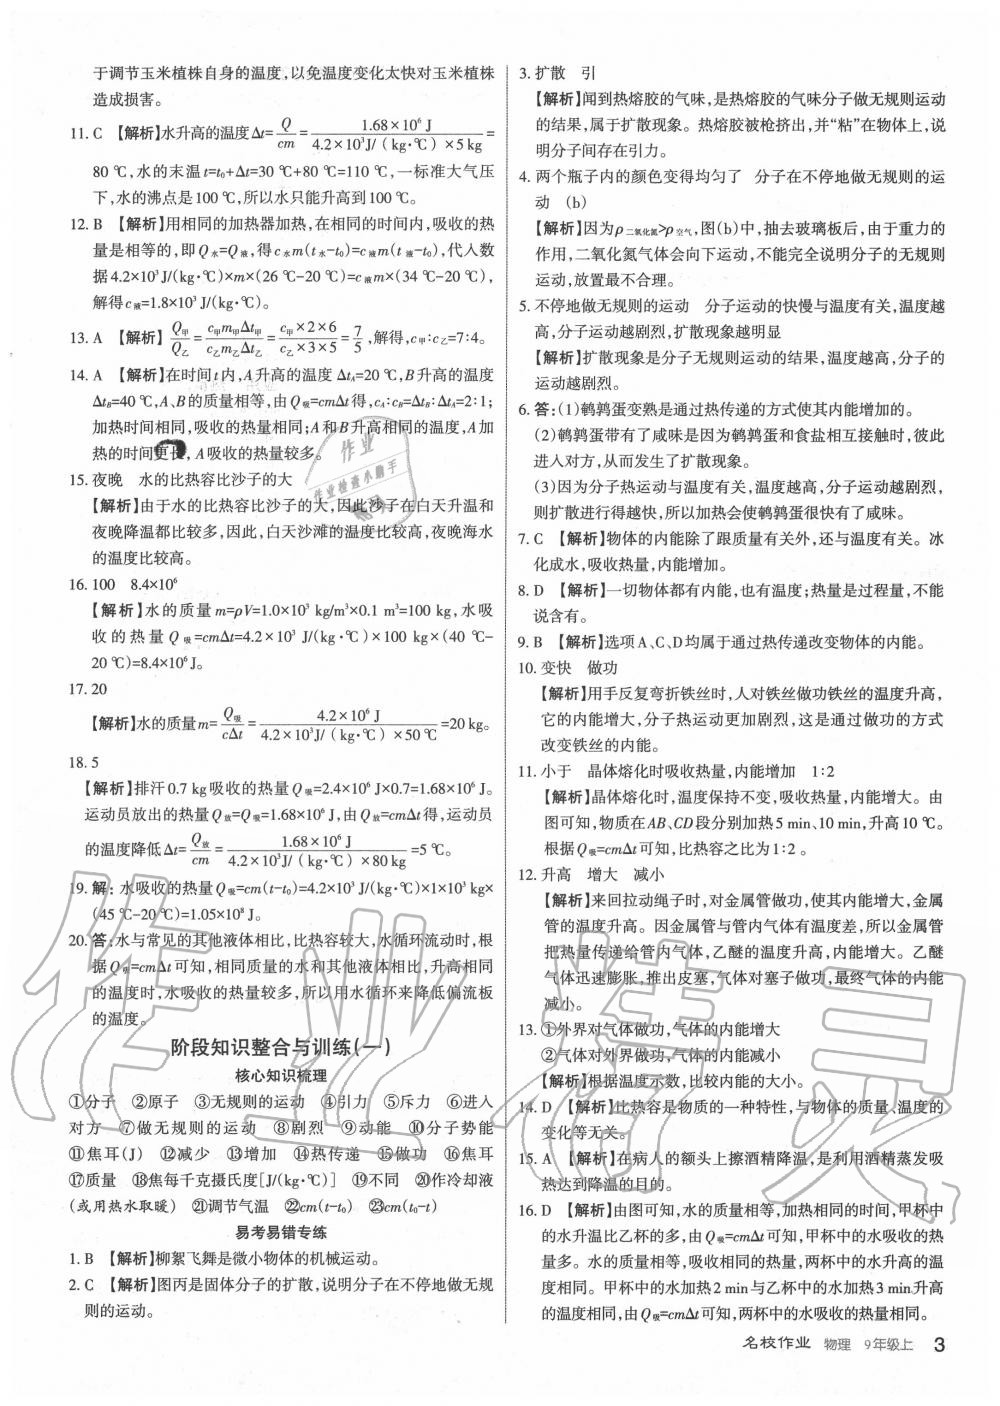 于调节玉米植株自身的温度,以免温度变化太快对玉米植株
造成损害。
11. C 【解析】水升高的温度Δt=Q/cm=1.68×10⁶ J/4.2×10³J/(kg·℃)×5 kg=
80 ℃,水的末温t=t₀+Δt=30 ℃+80 ℃=110 ℃,一标准大气压
下,水的沸点是100 ℃,所以水只能升高到100 ℃。
12. B 【解析】用相同的加热器加热,在相同的时间内,吸收的热
量是相等的,即Q水=Q液,得c水m(t水-t₀)=c液m(t液-t₀),代入数
据4.2×10³ J/(kg·℃)×m×(26 ℃-20 ℃)=c液m×(34 ℃-20 ℃),
解得c液=1.8×10³ J/(kg·℃)。
13. A 【解析】Q甲/Q乙=c甲m甲Δt甲/c乙m乙Δt乙=c甲×2×6/c乙×3×5=7/5,解得,c甲:c乙=7:4。
14. A 【解析】在时间t内,A升高的温度 Δt_A=20 ℃,B升高的温度
Δt_B=40 ℃,A、B的质量相等,由Q吸=cmΔt得,c_A:c_B=Δt_B:Δt_A=2:1;
加热时间相同,吸收的热量相同;A和B升高相同的温度,A加
热的时间更长,A吸收的热量较多。
15. 夜晚 水的比热容比沙子的大
【解析】由于水的比热容比沙子的大,因此沙子在白天升温和
夜晚降温都比较多,因此,白天沙滩的温度比较高,夜晚海水
的温度比较高。
16. 100 8.4×10⁶
【解析】水的质量m=ρV=1.0×10³ kg/m³×0.1 m³=100 kg,水吸
收的热量Q吸=cmΔt=4.2×10³ J/(kg·℃)×100 kg×(40 ℃-
20 ℃)=8.4×10⁶ J。
17. 20
【解析】水的质量m=Q吸/cΔt=4.2×10⁶ J/4.2×10³J/(kg·℃)×50 ℃=20 kg。
18. 5
【解析】排汗0.7 kg吸收的热量Q吸=2.4×10⁶ J×0.7=1.68×10⁶ J。
运动员放出的热量Q放=Q吸=1.68×10⁶ J,由Q放=cmΔt得,运动员
的温度降低Δt=Q放/cm=1.68×10⁶ J/4.2×10³J/(kg·℃)×80 kg=5 ℃。
19. 解:水吸收的热量Q吸=cm(t-t₀)=4.2×10³J/(kg·℃)×1×10³ kg×
(45 ℃-20 ℃)=1.05×10⁸ J。
20. 答:水与常见的其他液体相比,比热容较大,水循环流动时,根
据Q吸=cmΔt可知,相同质量的水和其他液体相比,升高相同
的温度时,水吸收的热量较多,所以用水循环来降低偏流板
的温度。
阶段知识整合与训练(一)
核心知识梳理
①分子 ②原子 ③无规则的运动 ④引力 ⑤斥力 ⑥进入
对方 ⑦做无规则的运动 ⑧剧烈 ⑨动能 ⑩分子势能
⑪焦耳(J) ⑫减少 ⑬增加 ⑭热传递 ⑮做功 ⑯焦耳
⑰质量 ⑱焦每千克摄氏度[J/(kg·℃)] ⑲不同 ⑳作冷却液
(或用热水取暖) ㉑调节气温 ㉒cm(t-t₀) ㉓cm(t₀-t)
易考易错专练
1. B 【解析】柳絮飞舞是微小物体的机械运动。
2. C 【解析】图丙是固体分子的扩散,说明分子在不停地做无规
则的运动。
3. 扩散 引
【解析】闻到热熔胶的气味,是热熔胶的气味分子做无规则运动
的结果,属于扩散现象。热熔胶被枪挤出,并“粘”在物体上,说
明分子间存在引力。
4. 两个瓶子内的颜色变得均匀了 分子在不停地做无规则的运
动 (b)
【解析】因为ρ二氧化氮>ρ空气,图(b)中,抽去玻璃板后,由于重力的
作用,二氧化氮气体会向下运动,不能完全说明分子的无规则
运动,放置最不合理。
5. 不停地做无规则的运动 分子运动的快慢与温度有关,温度越
高,分子运动越剧烈,扩散现象越明显
【解析】扩散现象是分子无规则运动的结果,温度越高,分子的
运动越剧烈。
6. 答:(1)鹌鹑蛋变熟是通过热传递的方式使其内能增加的。
(2)鹌鹑蛋带有了咸味是因为鹌鹑蛋和食盐相互接触时,彼此
进入对方,从而发生了扩散现象。
(3)因为分子热运动与温度有关,温度越高,分子运动越剧烈,
则扩散进行得越快,所以加热会使鹌鹑蛋很快有了咸味。
7. C 【解析】物体的内能除了跟质量有关外,还与温度有关。冰
化成水,吸收热量,内能增加。
8. D 【解析】一切物体都有内能,也有温度;热量是过程量,不能
说含有。
9. B 【解析】选项A、C、D均属于通过热传递改变物体的内能。
10. 变快 做功
【解析】用手反复弯折铁丝时,人对铁丝做功铁丝的温度升高,
它的内能增大,分子热运动更加剧烈,这是通过做功的方式
改变铁丝的内能。
11. 小于 晶体熔化时吸收热量,内能增加 1:2
【解析】晶体熔化时,温度保持不变,吸收热量,内能增大。由
图可知,物质在AB、CD段分别加热5 min、10 min,升高10 ℃。
根据Q吸=cmΔt可知,比热容之比为1:2。
12. 升高 增大 减小
【解析】来回拉动绳子时,对金属管做功,使其内能增大,金属
管的温度升高。因金属管与管内气体有温度差,所以金属管
把热量传递给管内气体,乙醚的温度升高,内能增大。乙醚
气体迅速膨胀,推出皮塞,气体对塞子做功,最终气体的内能
减小。
13. ①外界对气体做功,气体的内能增大
②气体对外界做功,气体的内能减小
【解析】根据温度示数,比较内能的大小。
14. D 【解析】比热容是物质的一种特性,与物体的质量、温度的
变化等无关。
15. A 【解析】在病人的额头上擦酒精降温,是利用酒精蒸发吸
热达到降温的目的。
16. D 【解析】由图可知,水的质量相等,加热相同的时间,甲杯中
的水升温比乙杯的多,由Q吸=cmΔt可知,甲杯中的水吸收的热量
多。水的质量相等,吸收相同的热量,两杯中的水升高的温
度相同。甲杯中的水加热2 min与乙杯中的水加热3 min升高
的温度相同,由Q吸=cmΔt可知,两杯中的水吸收的热量相同。
名校作业 物理 9年级上 3
作业
作业检查小助手
作业精灵